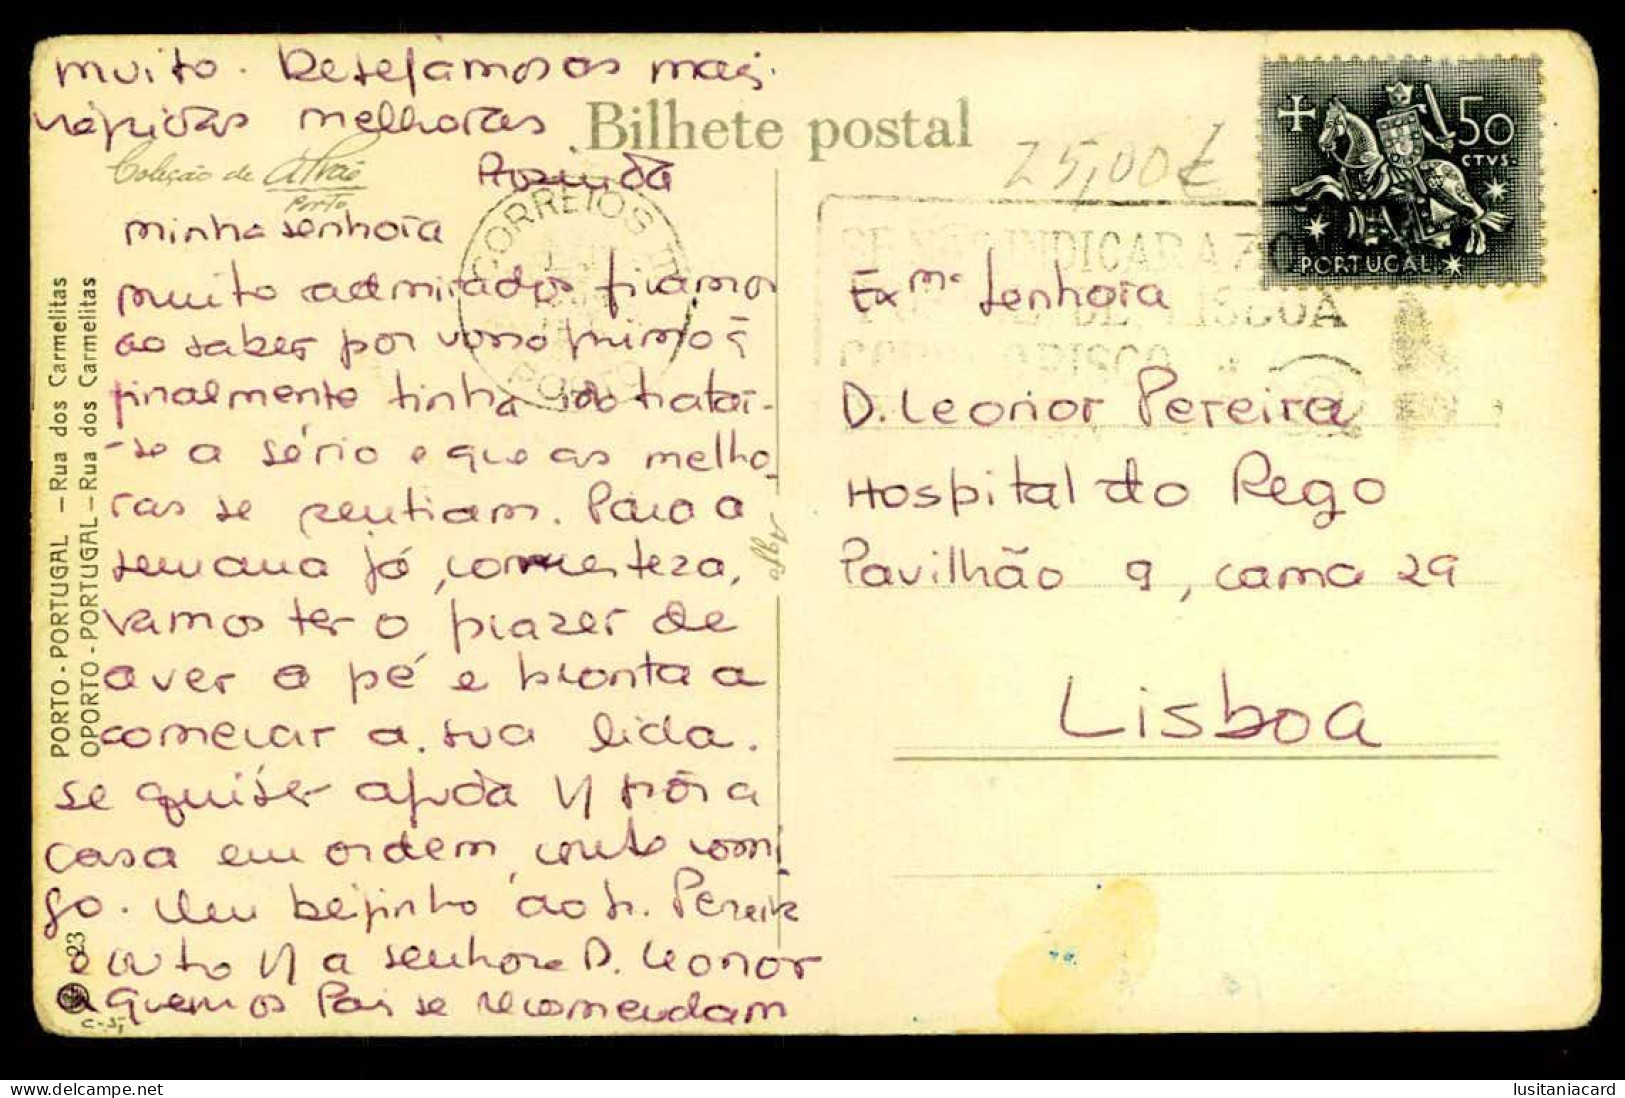 muito. Desejamos as mais
rápidas melhoras
Rosinda
Bilhete postal
Coleção de Alvão
Porto
25,00€
50
CTVS.
PORTUGAL
CORREIOS
PORTO
INDICAR A
DE LISBOA
minha senhora
muito admirados ficamos
ao saber por vosso primo q
finalmente tinha ido tratar-
-se a sério e que as melho-
ras se sentiam. Para a
semana já, com certeza,
vamos ter o prazer de
a ver a pé e pronta a
começar a sua lida.
Se quiser ajuda p/ pôr a
casa em ordem, conte comi-
go. Um beijinho ao Sr. Pereira
e outo p/ a senhora D. Leonor
a quem os Pais se recomendam
Exmª Senhora
D. Leonor Pereira
Hospital do Rego
Pavilhão 9, cama 29
Lisboa
PORTO - PORTUGAL — Rua dos Carmelitas
OPORTO - PORTUGAL — Rua dos Carmelitas
23
Agfa
lusitaniacard